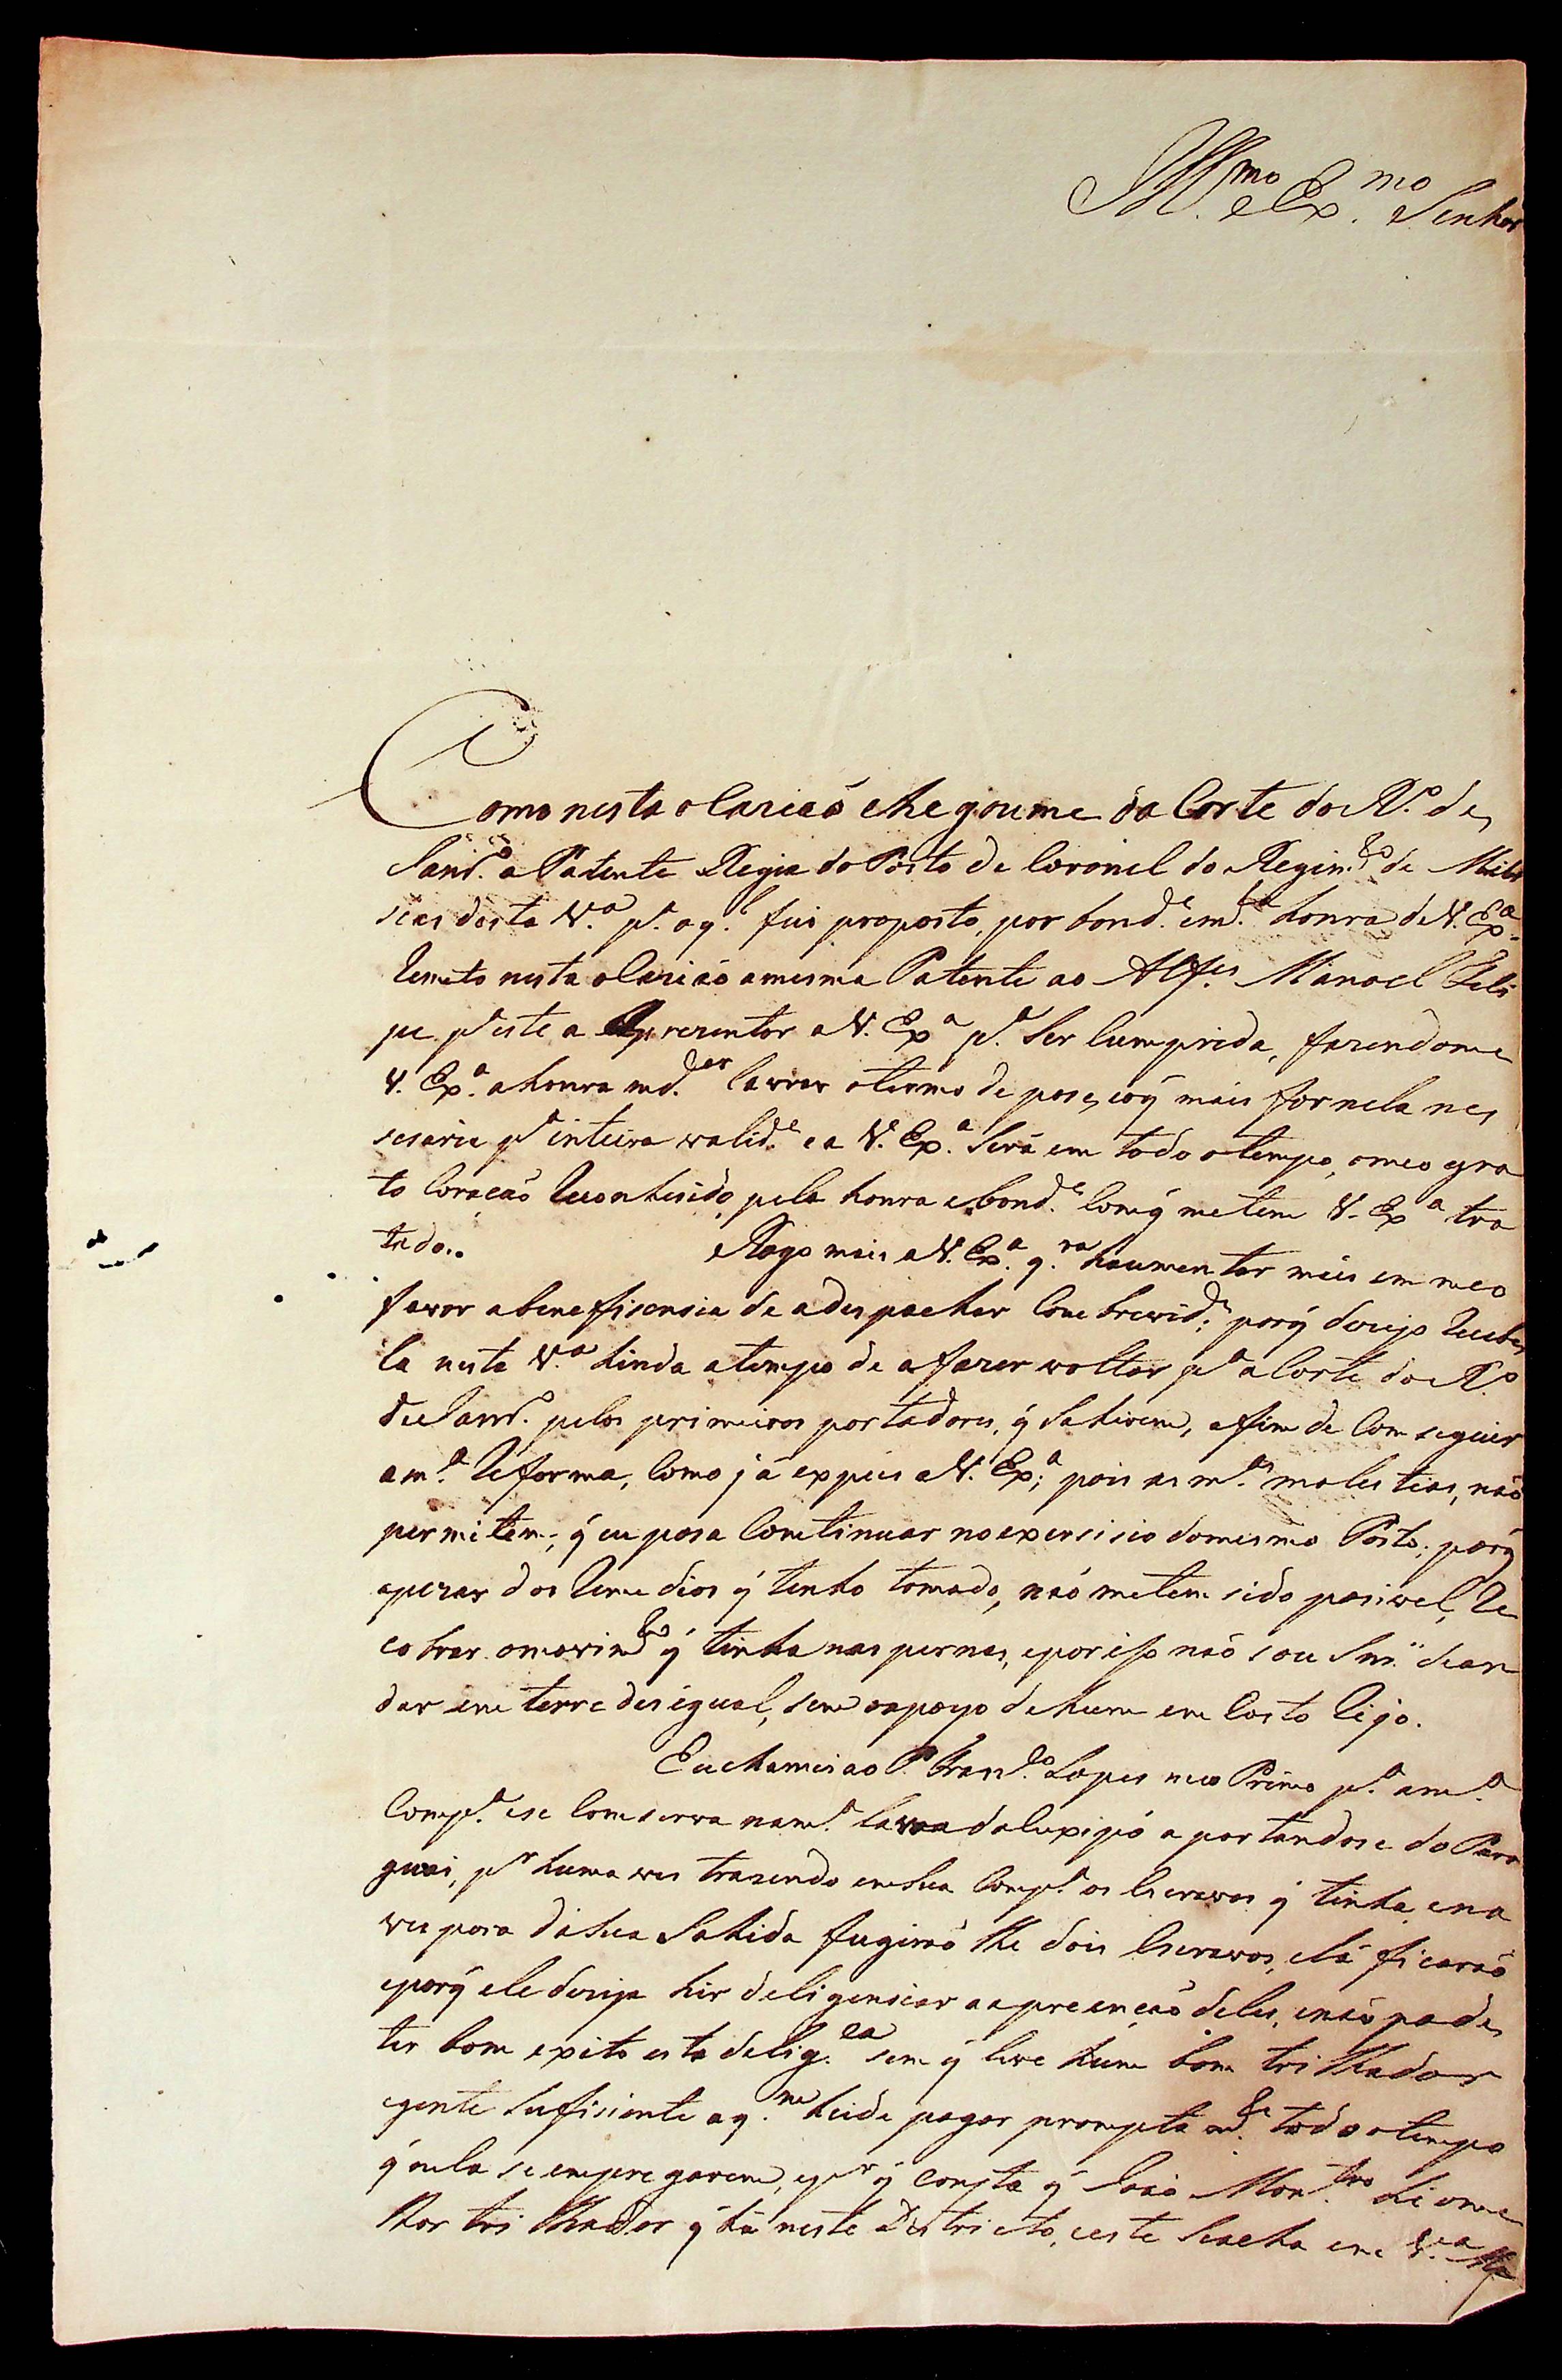 Ill.mo e Ex.mo Senhor
Como nesta oCazicaó chegoume da Corte do R.o de
Janr.o a Patente Regia do Posto de Coronel do Regim.to de Mili
sias desta V.a p.a oq.l fui proposto, por bond.e em.ta honra de V. Ex.a
Remeto nesta oCaziaó amesma Patente ao Alf.es Manoel Feli
pe p.a este a Aprezentar a V. Ex.a p.a Ser Cumprida, fazendome
V. Ex.a ahonra md.ar lavrar otermo de pose, eoq̃ mais for nela nes
sesario p.a inteira valid.e e a V. Ex.a Será em todo otempo, omeo gra
to Coraçaó Reconhesido, pela honra ebond.e Comq̃ metem V. Ex.a tra
tado.. Rogo mais a V. Ex.a q.ra haumentar mais em meo
favor abenefisensia de adespachar Com brevid.e; porq̃ dezejo Recebe
la nesta V.a hinda atempo de afazer voltar p.a aCorte do R.o
de Janr.o pelos primeiros portadores, q̃ Sahirem, afim de Comseguir
am.a Reforma, Como já expus a V. Ex.a; pois as m.as molestias, naó
permitem, q̃ eu posa Comtinuar noexersisio domesmo Posto; porq̃
apezar dos Remedios q̃ tenho tomado, naó metem sido posivel, Re
cobrar omovim.to q̃ tinha nas pernas, eporiso naó sou Snr. dean
dar em terra desigual, sem oapoyo dehum em Costo Rijo.
Euchamei ao P.e Fran.co Lopes meo Primo p.a am.a
Comp.a ese Comserva nam.a Lavra doCuxipó apartandose do Para
guai, p.r huma ves trazendo emSua Comp.a os Escravos q̃ tinha, ena
vespora daSua Sahida fugiraó lhe dois Escravos, elá ficaraó
eporq̃ ele dezeja hir deligensiar aapreençaó deles, enaó pode
ter bom exito esta delig.ca sem q̃ leve hum bom trilhador
egente Sufisiente aq.m heide pagar prompta m.te todo otempo
q̃ nela se empregarem, ep.r q̃ consta q̃ Joaó Mont.ro hé ome
lhor trilhador q̃ há neste Destricto, eeste Seacha em V.a